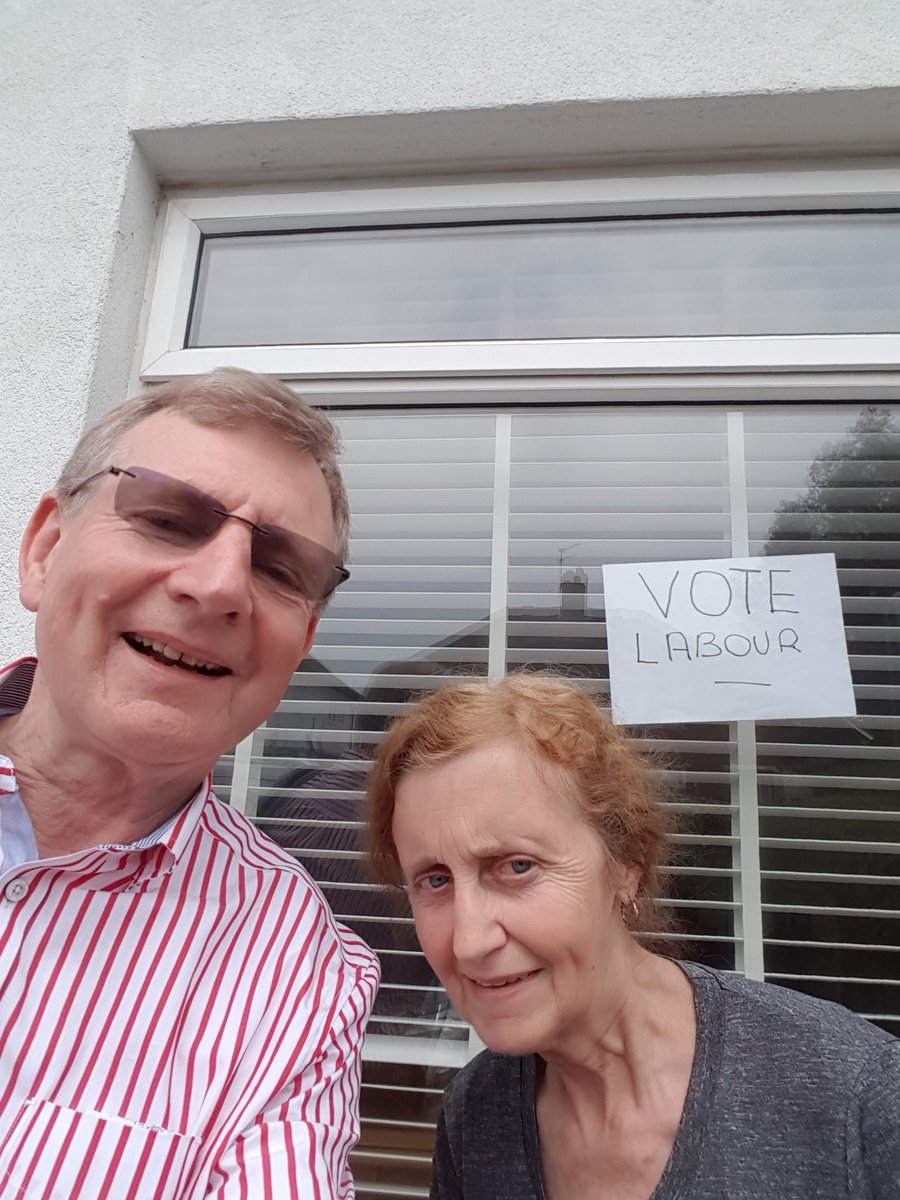 VOTE
LABOUR